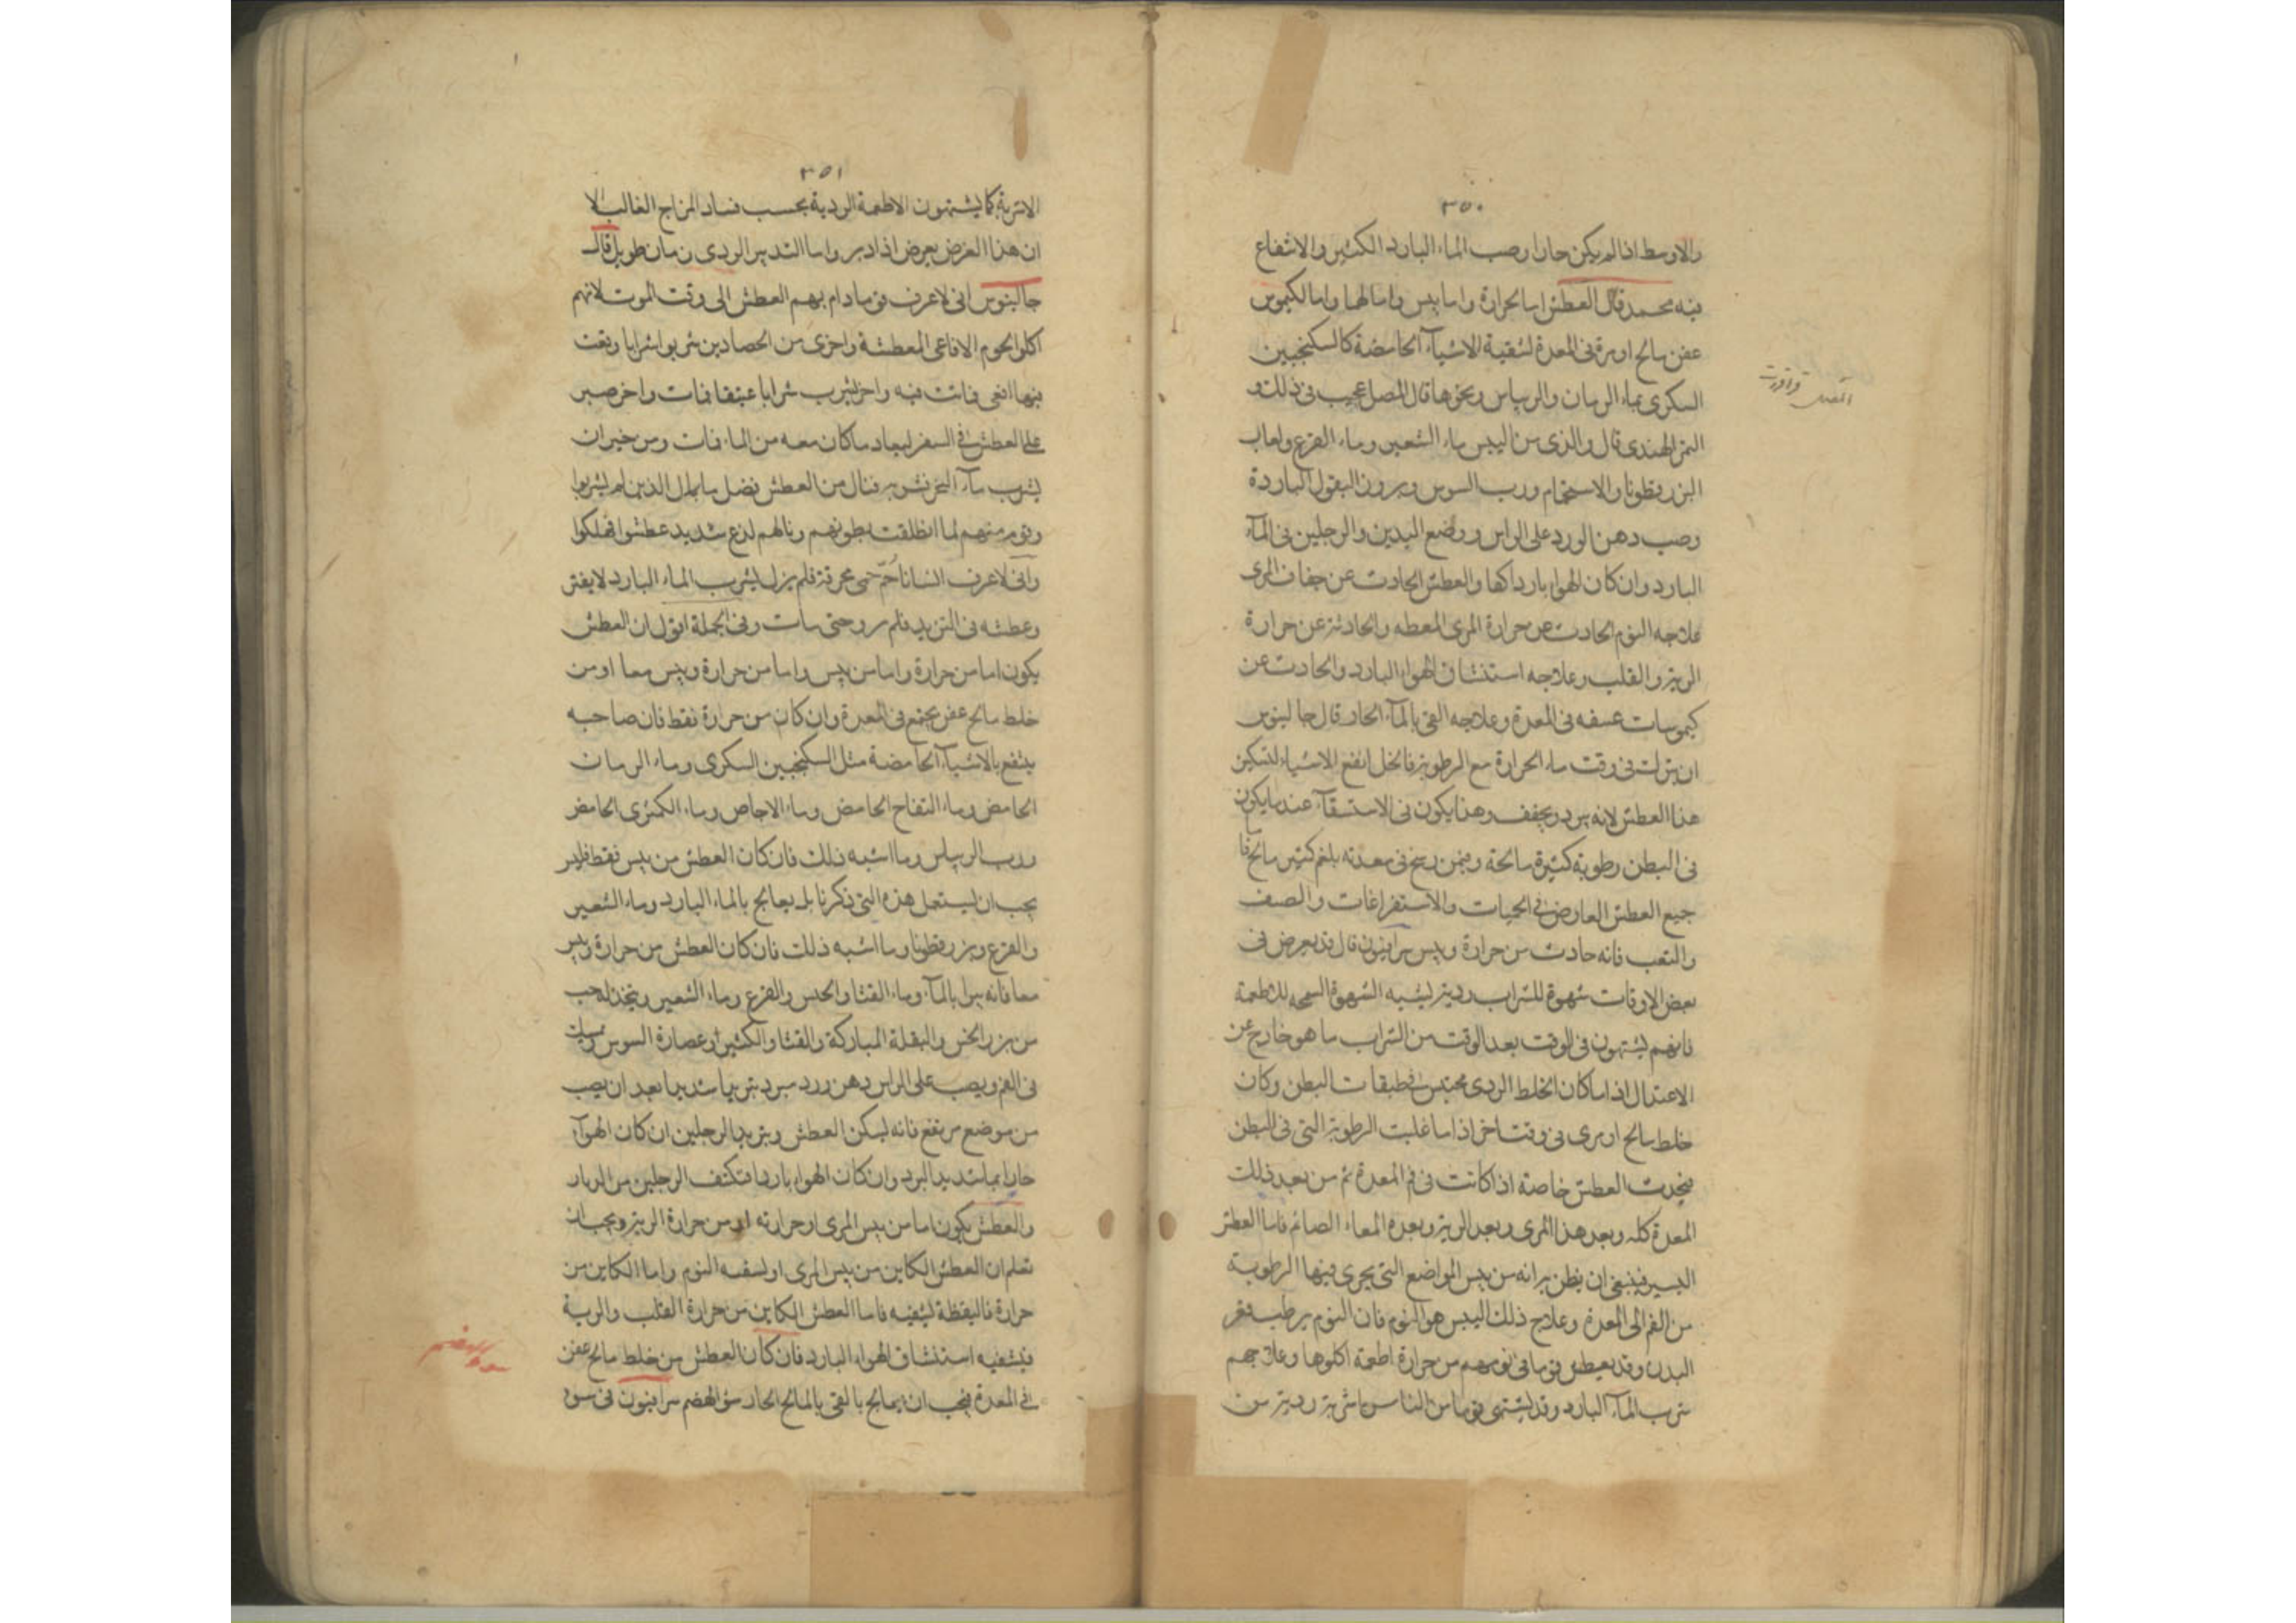 ٣٥٠
والاوسط اذا لم يكن حارا وصب الماء البارد الكثير والانتفاع
فيه محمد قال العطش اما لحرارة واما يبس واما لهما واما لكيموس
عفن مالح او مرة في المعدة لتنقية الاشياء الحامضة كالسكنجبين
السكرى بماء الرمان والريباس ونحوها قال المصل عجيب في ذلك و
التمر الهندى قال والذى من اليبس ماء الشعير وماء القرع ولعاب
البزر قطونا والاستحمام ورب السوس وبزور البقول الباردة
وصب دهن الورد على الراس ووضع اليدين والرجلين في الماء
البارد وان كان الهواء باردا والعطش الحادث عن جفاف المرى
علاجه النوم الحادث عن حرارة المرى والحادثة عن حرارة
الرية والقلب وعلاجه استنشاق الهواء البارد والحادث عن
كيموسات عفنه في المعدة وعلاجه القى بالماء الحار قال جالينوس
ان في وقت ماء الحرارة مع الرطوبة فالخل انفع الاشياء لتسكين
هذا العطش لانه يبرد ويجفف وهذا يكون في الاستسقاء عند ما يكون
في البطن رطوبة كثيرة مالحة وفيمن في معدته بلغم كثير مالح فا
جميع العطش العارض في الحميات والاستفراغات والصيف
والتعب فانه حادث من حرارة ويبس سرابيون قال قد يعرض في
بعض الاوقات شهوة للشراب ردية ليشبه الشهوة للاطعمة
فانهم يشتهون في الوقت بعد الوقت من الشراب ما هو خارج عن
الاعتدال اذا ما كان الخلط الردى محتبس في طبقات البطن وكان
خلط مالح او مرى في وقت اخر اذا ما غلبت الرطوبة التى في البطن
فيحدث العطش خاصة اذا كانت في فم المعدة ثم من بعد ذلك
المعدة كله وبعد هذا المرى وبعد الرية وبعده المعاء الصائم فاما العطش
اليسير فينبغى ان يظن به انه من يبس المواضع التى يجرى فيها الرطوبة
من الفم الى المعدة وعلاج ذلك اليبس هو النوم فان النوم يرطب
البدن وقد يعطش قوما في نومهم من حرارة اطعمة اكلوها وعلاجهم
شرب الماء البارد وقد يشتهى قوما من الناس اشربة ردية من
٣٥١
الاشربة كما يشتهون الاطعمة الردية بحسب فساد المزاج الغالب الا
ان هذا العرض يعرض اذا دبروا ما التدبير الردى زمان طويل قال
جالينوس انى لاعرف قوما دام بهم العطش الى وقت الموت لانهم
اكلوا لحوم الافاعى المعطشة واخرى من الحصادين شربوا شرابا وقعت
فيها افعى فماتت فيه واخر شرب شرابا عتيقا فمات واخر صبر
على العطش في السفر ما كان معه من الماء فمات ومن خير ان
يشرب ماء البحر فشربه فنال من العطش فضل ما الذين لم يشربوا
وقوم منهم لما انطلقت بطونهم ونالهم لذع شديد عطشوا فهلكوا
وانى لاعرف انسانا حمّ حمى محرقة فلم يزل يشرب الماء البارد لا يفتر
وعطشه في التزيد فلم يرو حتى مات وفي الجملة اقول ان العطش
يكون اما من حرارة واما من يبس واما من حرارة ويبس معا او من
خلط مالح عفن يجتمع في المعدة وان كان من حرارة فقط فان صاحبه
ينتفع بالاشياء الحامضة مثل السكنجبين السكرى وماء الرمان
الحامض وماء التفاح الحامض وماء الاجاص وماء الكمثرى الحامض
ورب الريباس وما اشبه ذلك فان كان العطش من يبس فقط فليس
يجب ان يستعمل هذه التى ذكرنا بل يعالج بالماء البارد وماء الشعير
والقرع وبزر قطونا وما اشبه ذلك فان كان العطش من حرارة ويبس
معا فانه يبرا بالماء وماء القثا والخس والقرع وماء الشعير ويتخذ له حب
من بزر الخس والبقلة المباركة والقثا والكثيرا وعصارة السوس ويمسك
في الفم ويصب على الراس دهن ورد مبرد تبريدا شديدا بعد ان يصب
من موضع مرتفع فانه يسكن العطش ويبرد الرجلين ان كان الهواء
حارا بماء شديد البرد وان كان الهواء باردا فتكشف الرجلين من الدثار
والعطش يكون اما من يبس المرى او حرارته او من حرارة الرية ويجب ان
تعلم ان العطش الكاين من يبس المرى النوم واما الكاين من
حرارة فاليقظة ليشفيه فاما العطش الكاين من حرارة القلب والرية
فيشفيه استنشاق الهواء البارد فان كان العطش من خلط مالح عفن
في المعدة فيجب ان يعالج بالقى بالمالح الحار سو الهضم سرابيون في سو
سو الهضم